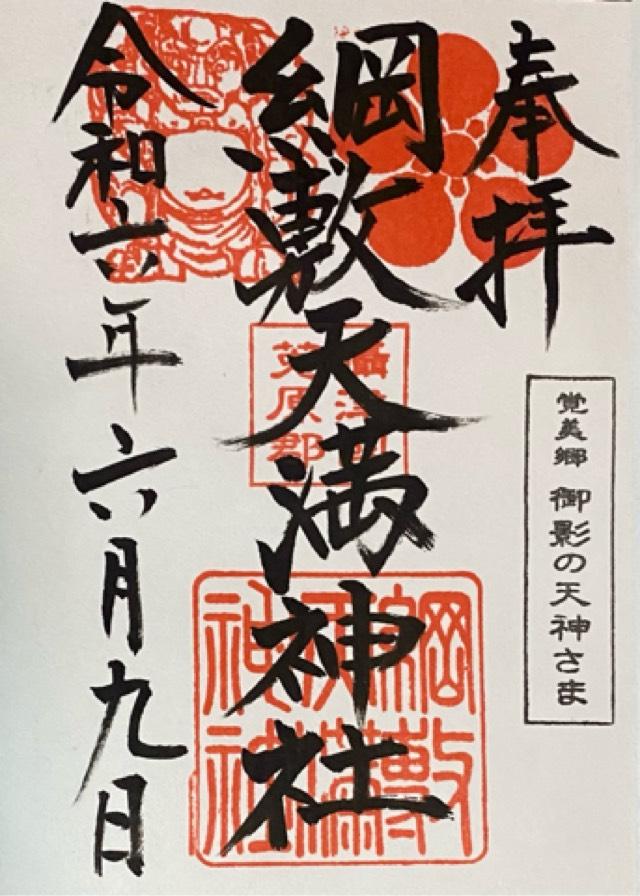 奉拝
覚美郷 御影の天神さま
綱敷天満神社
攝津國
菟原郡
綱敷
天満
神社
令和六年六月九日